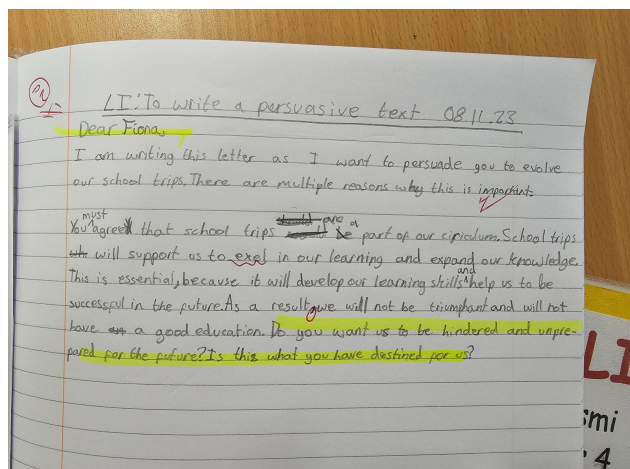 LI: To write a persuasive text 08.11.23
Dear Fiona,
I am writing this letter as I want to persuade you to evolve
our school trips. There are multiple reasons why this is important.
You must agree that school trips are a part of our ciriculum. School trips
will support us to exel in our learning and expand our knowledge.
This is essential, because it will develop our learning skills and help us to be
successful in the future. As a result, we will not be triumphant and will not
have a good education. Do you want us to be hindered and unpre-
pared for the future? Is this what you have destined for us?
LI
smi
4